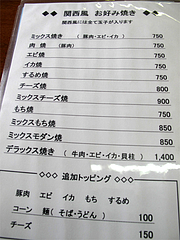 ◇◆◇ 関西風 お好み焼き ◇◆◇
関西風には全て玉子が入ります
ミックス焼き （豚肉・エビ・イカ） 750
肉 焼 （豚肉） 750
エビ焼 750
イカ焼 750
するめ焼 750
チーズ焼 800
ミックスチーズ焼 900
もち焼 750
ミックスもち焼 850
ミックスモダン焼 850
デラックス焼き （牛肉・エビ・イカ・貝柱） 1,400
◇◆◇ 追加トッピング ◇◆◇
豚肉 エビ イカ もち するめ
コーン 麺（そば・うどん） 100
チーズ 150